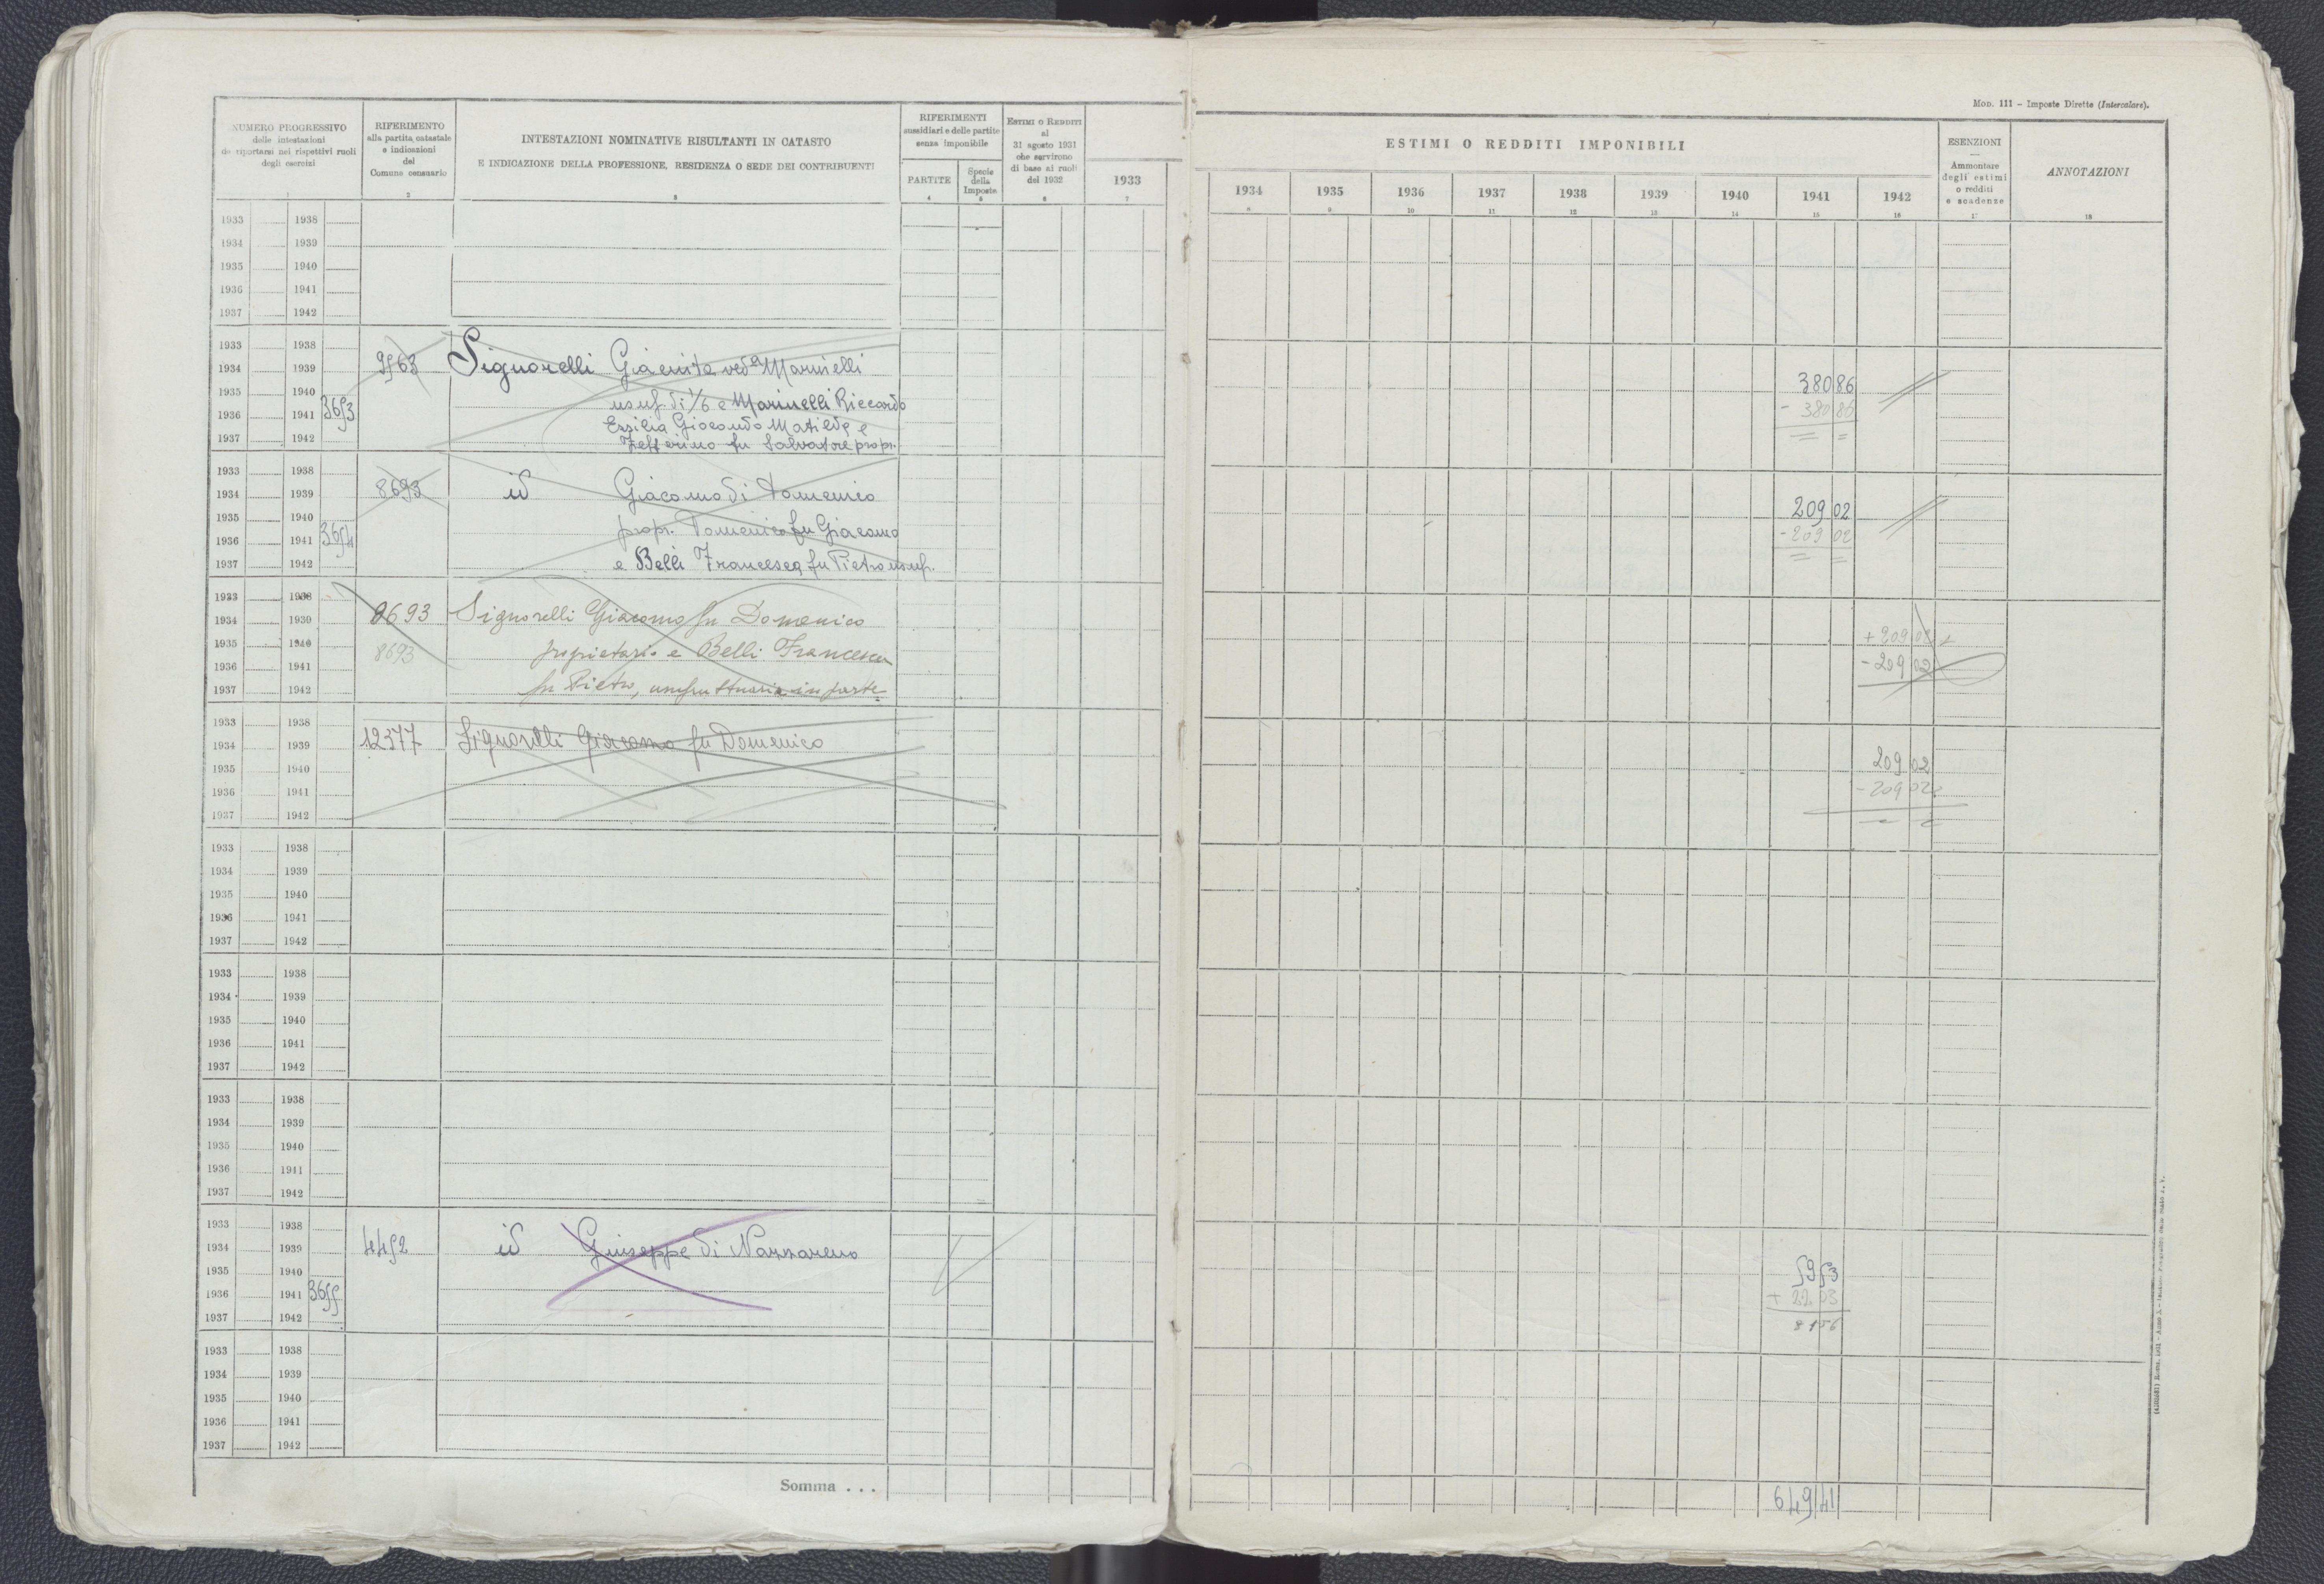 MOD. 111 – Imposte Dirette (Intercalare).
NUMERO PROGRESSIVO
delle intestazioni
da riportarsi nei rispettivi ruoli
degli esercizi
1
RIFERIMENTO
alla partita catastale
e indicazioni
del
Comune censuario
2
INTESTAZIONI NOMINATIVE RISULTANTI IN CATASTO
E INDICAZIONE DELLA PROFESSIONE, RESIDENZA O SEDE DEI CONTRIBUENTI
3
RIFERIMENTI
sussidiari e delle partite
senza imponibile
PARTITE
4
Specie
della
Imposta
5
ESTIMI O REDDITI
al
31 agosto 1931
che servirono
di base ai ruoli
del 1932
6
1933
7
ESTIMI O REDDITI IMPONIBILI
1934 1935 1936 1937 1938 1939 1940 1941 1942
8 9 10 11 12 13 14 15 16
ESENZIONI
—
Ammontare
degli estimi
o redditi
e scadenze
17
ANNOTAZIONI
18
1933 1938
1934 1939
1935 1940
1936 1941
1937 1942
1933 1938
1934 1939 9563 Signorelli Giacinta ved.a Marinelli
1935 1940 380 86
1936 1941 3653 usuf. di 1/6 e Marinelli Riccardo - 380 86
Ersilia Giocondo Matilde e = =
1937 1942 Zefferino fu Salvatore propr.
1933 1938
1934 1939 8693 id Giacomo di Domenico
1935 1940 209 02
1936 1941 3654 propr. Domenico fu Giacomo - 209 02
1937 1942 e Belli Francesca fu Pietro usuf. = =
1933 1938
1934 1939 8693 Signorelli Giacomo fu Domenico
1935 1940 8693 proprietario e Belli Francesca + 209 02
1936 1941 - 209 02
1937 1942 fu Pietro, usufruttuaria in parte
1933 1938
1934 1939 12377 Signorelli Giacomo fu Domenico
1935 1940 209 02
1936 1941 - 209 02
1937 1942
1933 1938
1934 1939
1935 1940
1936 1941
1937 1942
1933 1938
1934 1939
1935 1940
1936 1941
1937 1942
1933 1938
1934 1939
1935 1940
1936 1941
1937 1942
1933 1938
1934 1939 4452 id Giuseppe di Nazzareno
1935 1940 59 53
1936 1941 3655 + 22 03
1937 1942 81 56
1933 1938
1934 1939
1935 1940
1936 1941
1937 1942
Somma . . . 649 41